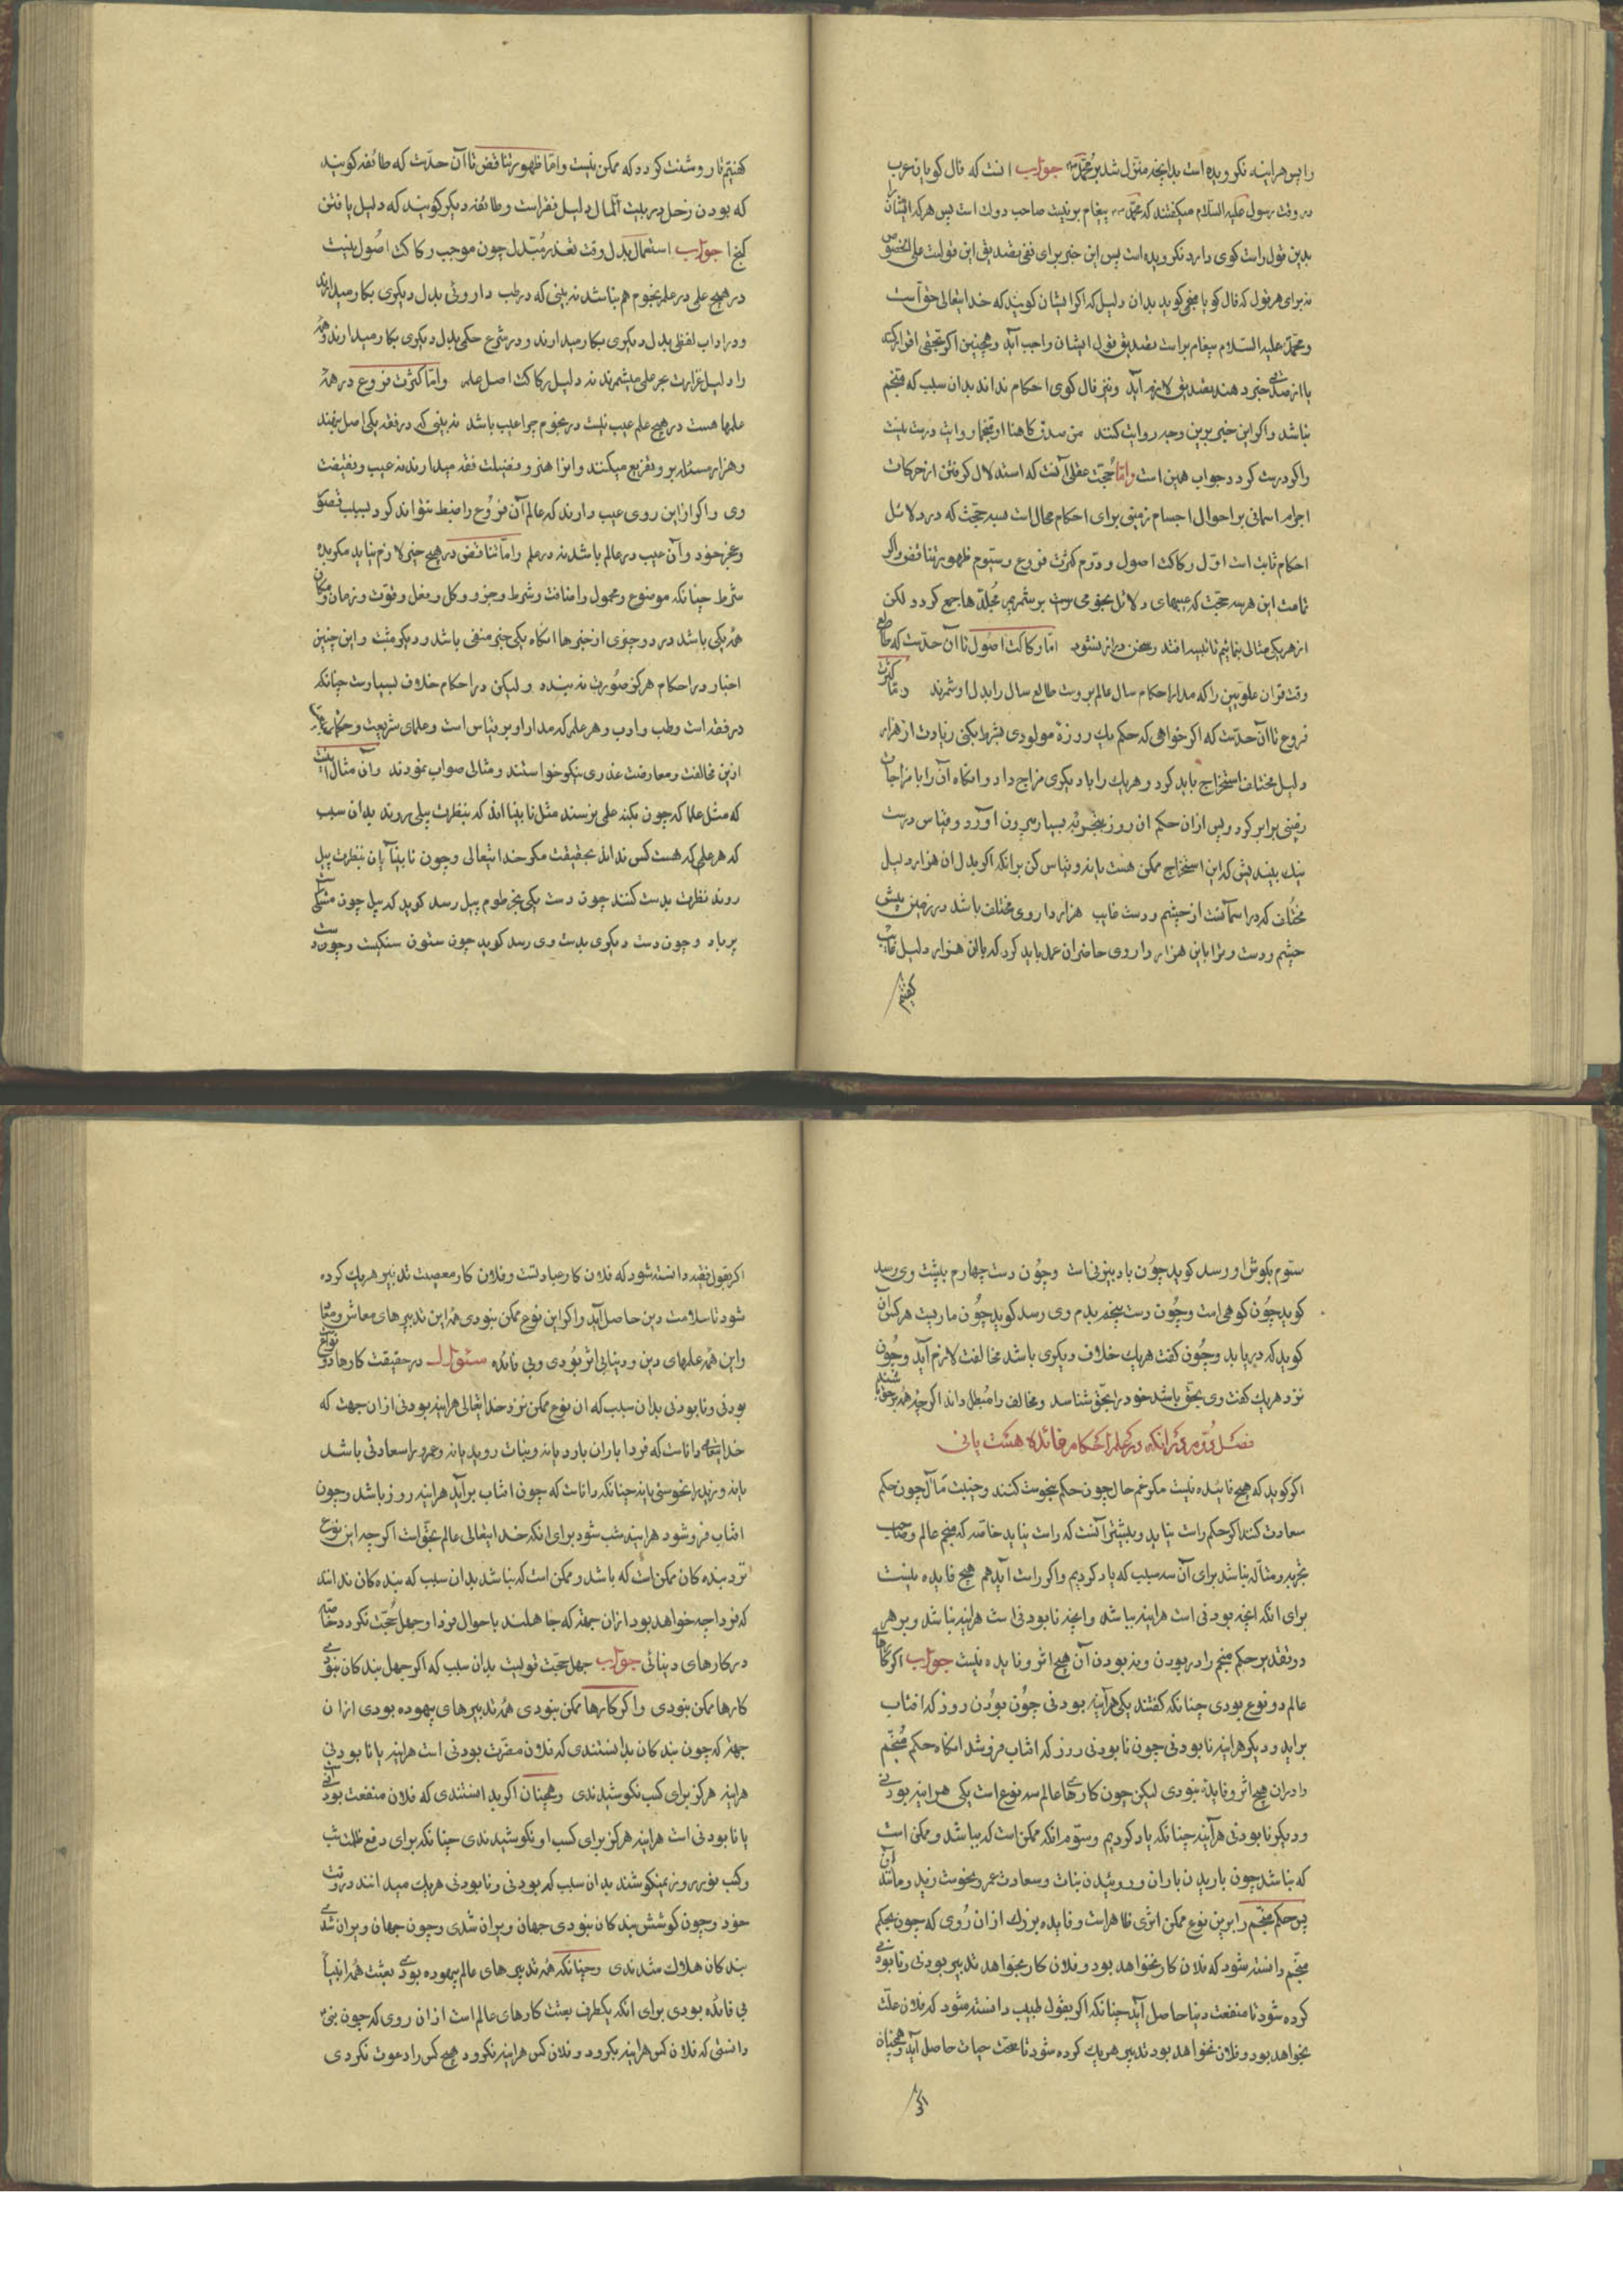 را پس هراینه نکرویده است بدانچه منزل شد بر محمد جواب انست که فال کویان عرب
در وقت رسول علیه السلام میکفتند که محمد پیغام بر نیست صاحب دولت است پس هرکه ایشان را
بدین قول راست کوی دارد نکرویده است پس این خبر برای نفی تصدیق این قولست علی الخصوص
نه برای هر قول که فال کو یا منجم کوید بدان دلیل که اکر ایشان کویند که خدایتعالی حق است
و محمد علیه السلام پیغام بر است تصدیق قول ایشان واجب آید و همچنین اکر بحقی اقرار کنند
یا از صدقی خبر دهند تصدیق لازم آید و نیز فال کوی احکام نداند بدان سبب که منجم
نباشد و اکر این خبر برین وجه روایت کنند من صدق کاهنا او منجما روایت درست نیست
واکر درست کردد جواب همین است و اما حجت عقلی آنست که استدلال کرفتن از حرکات
اجرام اسمانی بر احوال اجسام زمینی برای احکام محال است بسه حجت که در دلائل
احکام ثابت است اول رکاکت اصول و دوم کثرت فروع و سیوم ظهور تناقض واکر
تمامت این هر سه حجت که عیبهای دلائل نجومی است بر شمریم مجلدها جمع کردد لکن
از هر یکی مثالی بنمائیم تا پیدا افتد و سخن دراز نشود اما رکاکت اصول تا آن حدست که طالع
وقت قران علویین را که مدار احکام سال عالم بروست طالع سال را بدل او شمرند و اما کثرت
فروع تا آن حدست که اکر خواهی که حکم یک روزهٔ مولودی بشرط بکنی زیادت از هزار
دلیل مختلف استخراج باید کرد و هر یک را با دیکری مزاج داد و انکاه آن را با مزاجات
زمینی برابر کرد و پس ازان حکم ان روز بیرون آورد و قیاس درست
نیک بیندیش که این استخراج ممکن هست یا نه و قیاس کن برانکه اکر بدل ان هزار دلیل
مختلف که در اسمانست از چشم و دست غایب هزار داروی مختلف باشد در زمین پیش
چشم و دست و ترا باین هزار داروی حاضران عمل باید کرد که بان هزار دلیل غایب
کفتیم
کفتیم تا روشنت کردد که ممکن نیست و اما ظهور تناقض تا آن حدست که طائفه کویند
که بودن زحل در بیت المال دلیل فقر است و طائفه دیکر کویند که دلیل یافتن
کنج ا جواب استعمال بدل وقت تعذر مبدل چون موجب رکاکت اصول نیست
در هیچ علمی در علم نجوم هم نباشد نه بینی که در طب داروئی بدل دیکری بکار میدارند
و در اداب لفظی بدل دیکری بکار میدارند و در شرع حکمی بدل دیکری بکار میدارند و همه
را دلیل غزارت بحر علم میشمرند نه دلیل رکاکت اصل علم و اما کثرت فروع در همه
علمها هست در هیچ علم عیب نیست در نجوم چرا عیب باشد نه بینی که در فقه یکی اصل بنهند
و هزار مسئله برو تفریع میکنند و انرا هنر و فضیلت فقه میدارند نه عیب و نقیصت
وی واکر ازاین روی عیب دارند که عالم آن فروع را ضبط نتواند کرد بسبب قصور
و عجز خود و آن عیب در عالم باشد نه در علم و اما تناقض در هیچ خبر لازم نیاید مکر بده
شرط چنانکه موضوع و محمول و اضافت و شرط و جزو و کل و فعل و قوت و زمان و مکان
همه یکی باشد در دو جزوی از خبرها انکاه یکی خبر منفی باشد و دیکر مثبت و این چنین
اخبار در احکام هرکز صورت نه بندد و لیکن در احکام خلاف بسیارست چنانکه
در فقه است و طب و ادب و هر علم که مدار او بر قیاس است و علمای شریعت و حکمای
ازین مخالفت و معارضت عذری نیکو خواستند و مثالی صواب نمودند و آن مثال اینست
که مثل علما که چون بکنه علمی نرسند مثل نابینا اند که بنظارت پیلی روند بدان سبب
که هر علمی که هست کس نداند بحقیقت مکر خدایتعالی و چون نابینا آیان بنظارت پیل
روند نظارت بدست کنند چون دست یکی بخرطوم پیل رسد کوید که پیل چون مشکیست
پرباد و چون دست دیکری بدست وی رسد کوید چون ستون سنکیست و چون دست
ستوم بکوش او رسد کوید چون بادبیزنی است و چون دست چهارم بپشت وی رسد
کوید چون کوهی است و چون دست پنجم بدم وی رسد کوید چون ماریست هرکس آن
کوید که دریابد و چون کفت هر یک خلاف دیکری باشد مخالفت لازم آید و چون
نزد هر یک کفت وی بحق باشد خود را بحق شناسد و مخالف را مبطل داند اکرچه همه بر حق باشند
فصل دوم در انکه در علم احکام فائده هست یا نی
اکر کوید که هیچ فائده نیست مکر غم حال چون حکم بنحوست کنند و خیبت مآل چون حکم
سعادت کنند اکر حکم راست نیاید و بیشتر آنست که راست نیاید خاصه که منجم عالم و صاحب
تجربه و متأله نباشد برای آن سه سبب که یاد کردیم واکر راست آید هم هیچ فایده نیست
برای انکه انچه بودنی است هراینه بباشد و انچه نابودنی است هراینه نباشد و بر هر
دو تقدیر حکم منجم را در بودن و نه بودن آن هیچ اثر و فایده نیست جواب اکر کارهای
عالم دو نوع بودی چنانکه کفتند یکی هرآینه بودنی چون بودن روز که افتاب
براید و دیکر هراینه نابودنی چون نابودنی روز که افتاب فروشد انکاه حکم منجم
را دران هیچ اثر و فایده نبودی لیکن چون کارهای عالم سه نوع است یکی هراینه بودنی
و دیکر نابودنی هرآینه چنانکه یاد کردیم و ستوم انکه ممکن است که بباشد و ممکن است
که نباشد چون باریدن باران و روئیدن نبات و سعادت عمر و نحوست زید و مانند آن
پس حکم منجم را برین نوع ممکن اثری ظاهر است و فایده بزرک ازان روی که چون بحکم
منجم دانسته شود که فلان کار بخواهد بود و فلان کار نخواهد تدبیر بودنی و نابودنی
کرده شود تا منفعت دنیا حاصل آید چنانکه اکر بقول طبیب دانسته شود که فلان علت
بخواهد بود و فلان نخواهد بود تدبیر هر یک کرده شود تا صحت حیات حاصل آید و همچنان
اکر
اکر بقول فقیه دانسته شود که فلان کار عبادتست و فلان کار معصیت تدبیر هر یک کرده
شود تا سلامت دین حاصل آید واکر این نوع ممکن نبودی همه این تدبیرهای معاش و معاد
و این همه علمهای دین و دنیائی اثر بودی و بی فائده سئوال در حقیقت کارها دو نوع
بودنی و نابودنی بدان سبب که ان نوع ممکن نزد خدایتعالی هراینه بودنی ازان جهت که
خدایتعالی داناست که فردا باران بارد یا نه و نبات روید یا نه و عمرو را سعادتی باشد
یا نه و زید را نحوستی یا نه چنانکه داناست که چون افتاب برآید هراینه روز باشد و چون
افتاب فروشود هراینه شب شود برای انکه خدایتعالی عالم بحق است اکرچه این نوع
نزد بندهکان ممکن است که باشد و ممکن است که نباشد بدان سبب که بندهکان ندانند
که فردا چه خواهد بود ازان جهة که جاهلند باحوال فردا و جهل حجت نکردد خاصه
در کارهای دنیائی جواب جهل حجت قویست بدان سبب که اکر جهل بندکان نبودی
کارها ممکن نبودی واکر کارها ممکن نبودی همه تدبیرهای بیهوده بودی ازان
جهة که چون بندکان بدانستندی که فلان مضرت بودنی است هراینه یا نابودنی
هراینه هرکز برای کسب نکوشیدندی و همچنان اکر بدانستندی که فلان منفعت بودنی است
یا نابودنی است هراینه هرکز برای کسب او نکوشیدندی چنانکه برای دفع ظلمت شب
و کسب نور روز نمیکوشند بدان سبب که بودنی و نابودنی هر یک میدانند در وقت
خود و چون کوشش بندکان نبودی جهان ویران شدی و چون جهان ویران شدی
بندکان هلاک شدندی و چنانکه همه تدبیرهای عالم بیهوده بودی بعثت همه انبیا
بی فائده بودی برای انکه یکطرف بعثت کارهای عالم است ازان روی که چون نبی
دانستی که فلان کس هراینه بکرود و فلان کس هراینه نکرود هیچ کس را دعوت نکردی